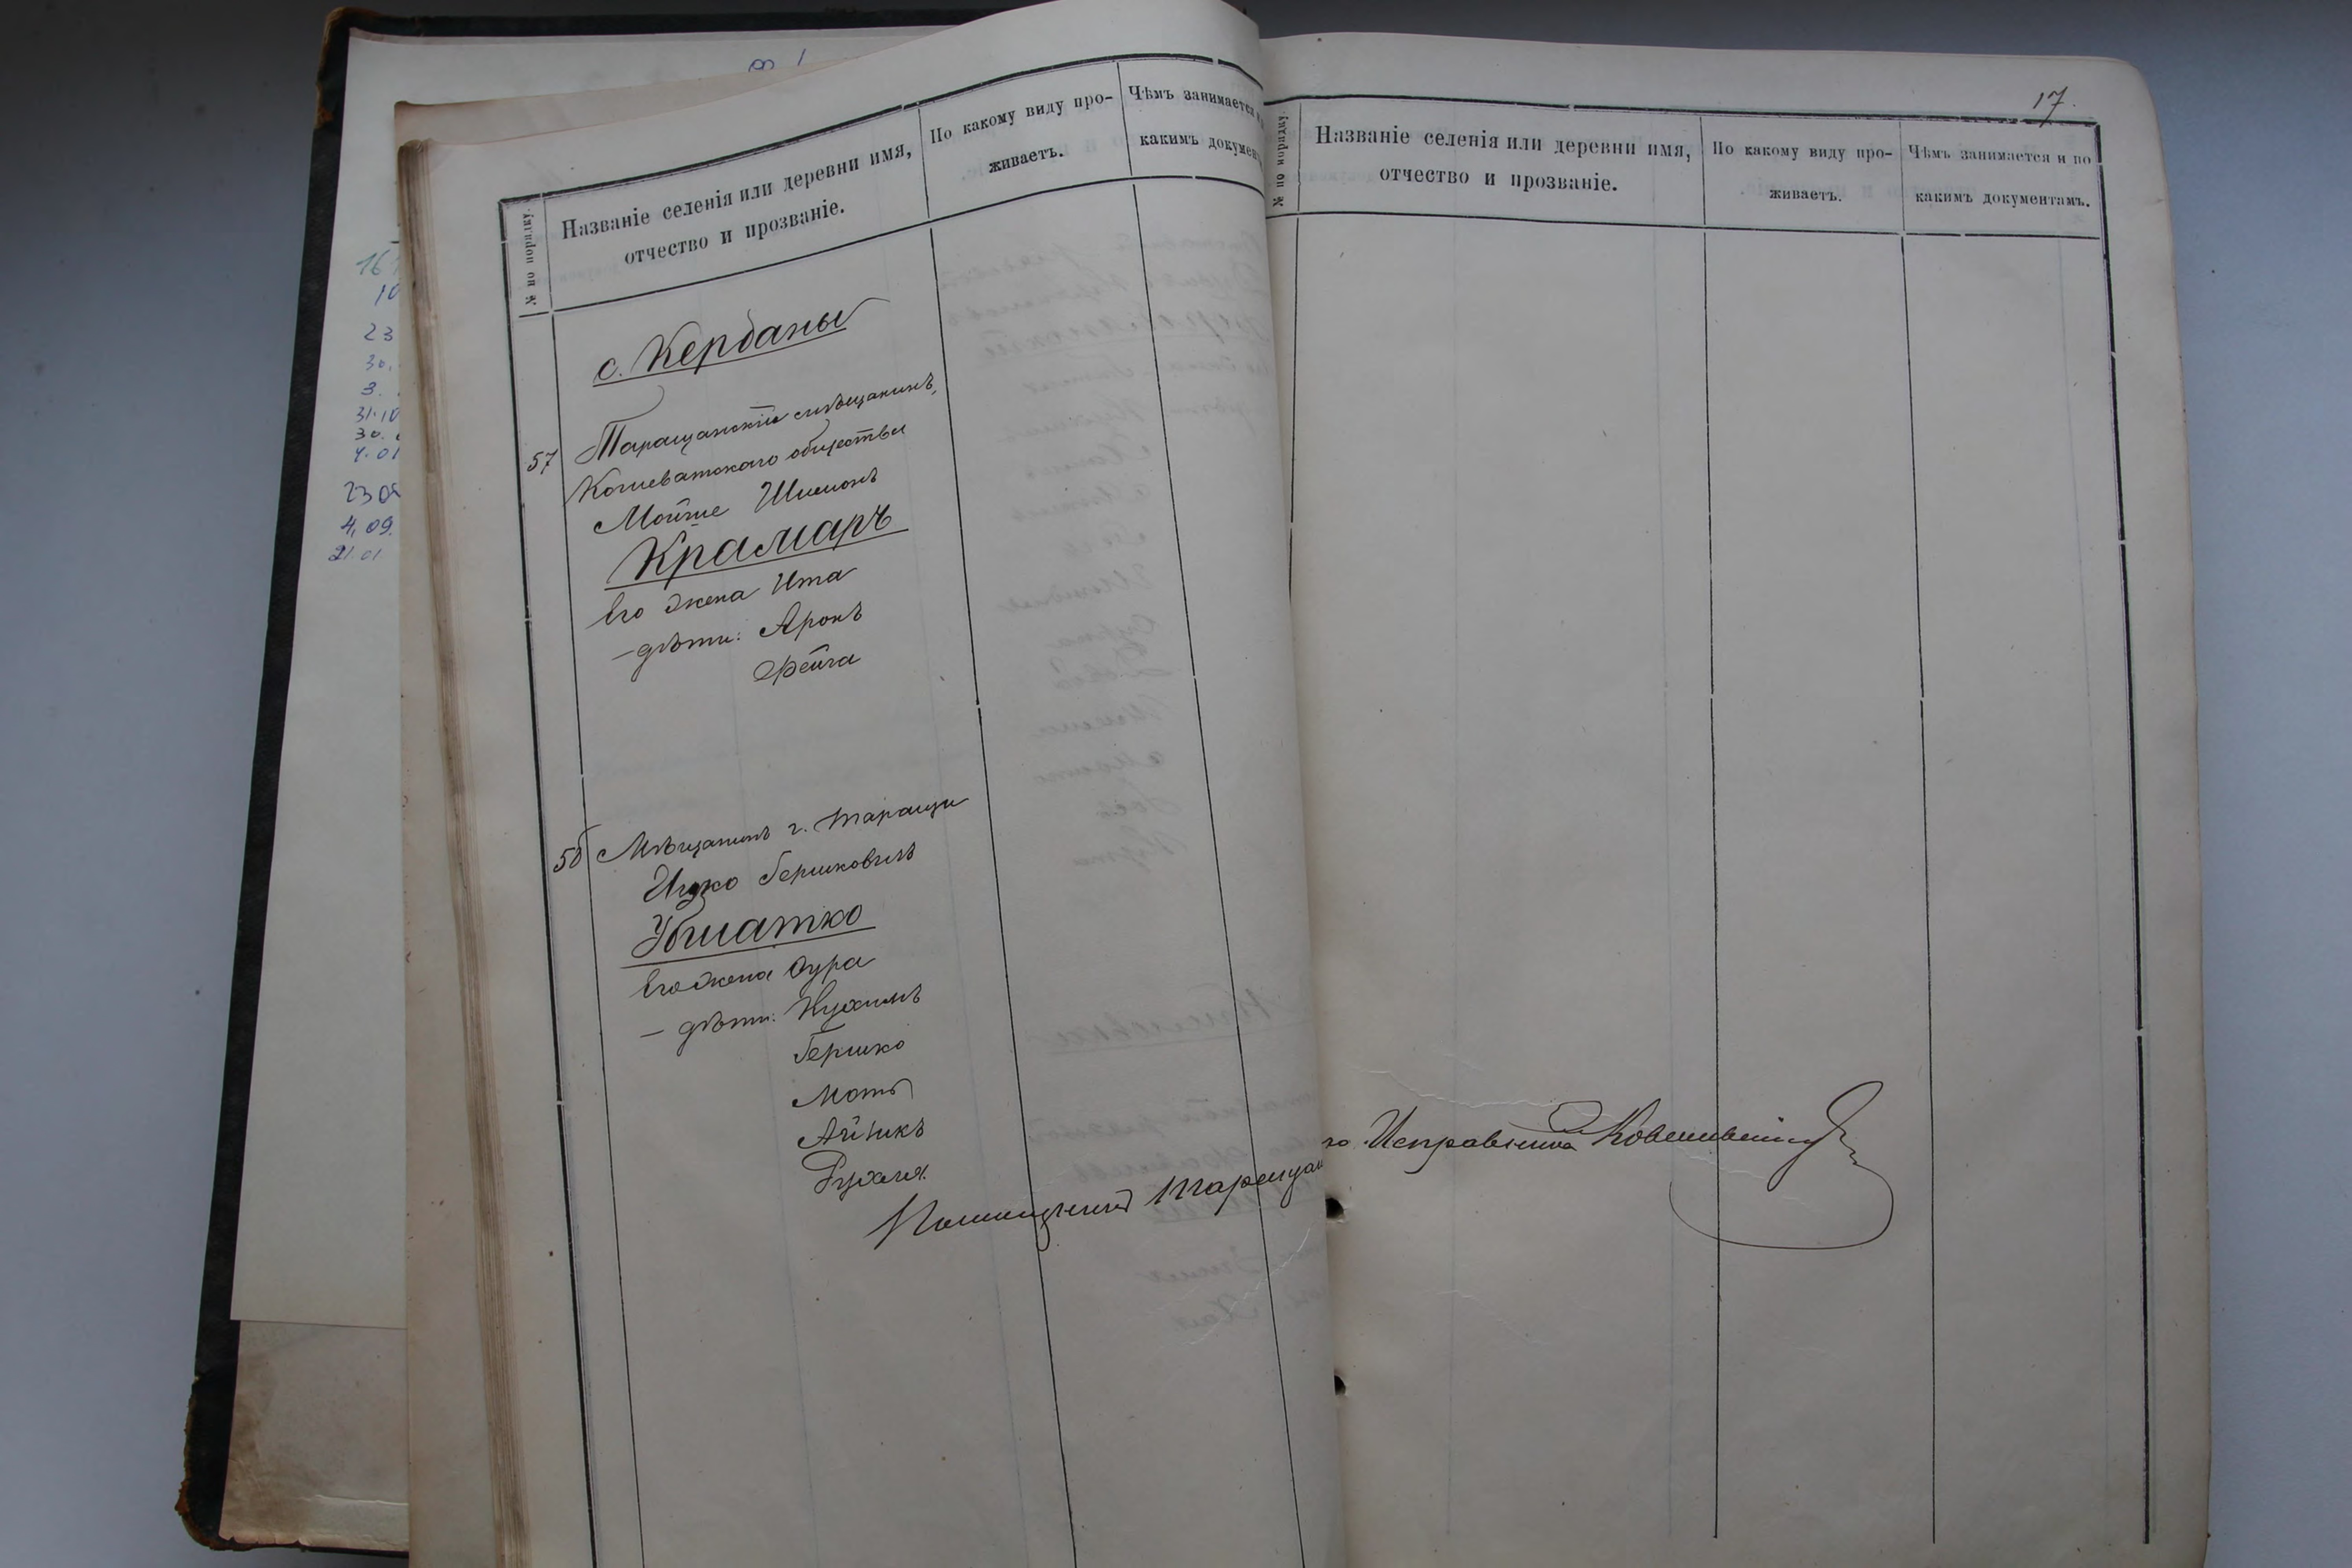 № по порядку.
Названіе селенія или деревни имя,
отчество и прозваніе.
По какому виду про-
живаетъ.
Чѣмъ занимается
какимъ докумен
с. Керданы
57
Таращанскій мѣщанинъ,
Кошеватскаго общества
Мойше Шимонъ
Крамаръ
Его жена Ита
— дѣти: Аронъ
Фейга
58
Мѣщанинъ г. Таращи
Ицко Гершковичъ
Убшатко
Его жена Сура
— дѣти: Нухимъ
Гершко
Моть
Айзикъ
Рухля.
Помощникъ Таращан
17.
№ по порядку.
Названіе селенія или деревни имя,
отчество и прозваніе.
По какому виду про-
живаетъ.
Чѣмъ занимается и по
какимъ документамъ.
го Исправника
16
10
23
30.
3.
31.10
30.
4.01
23 09
4,09.
21.01